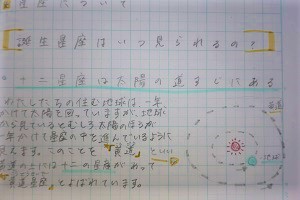 星座について
誕生星座はいつ見られるの?
十二星座は太陽の道すじにある
わたしたちの住む地球は、一年
かけて太陽を回っていますが、地球
から見ているとむしろ太陽のほうが
一年かけて星座の中を進んでいるように
見えます。このことを「黄道」といい
黄道の上には十二の星座があって
「黄道星座」とよばれています。
黄道
地球